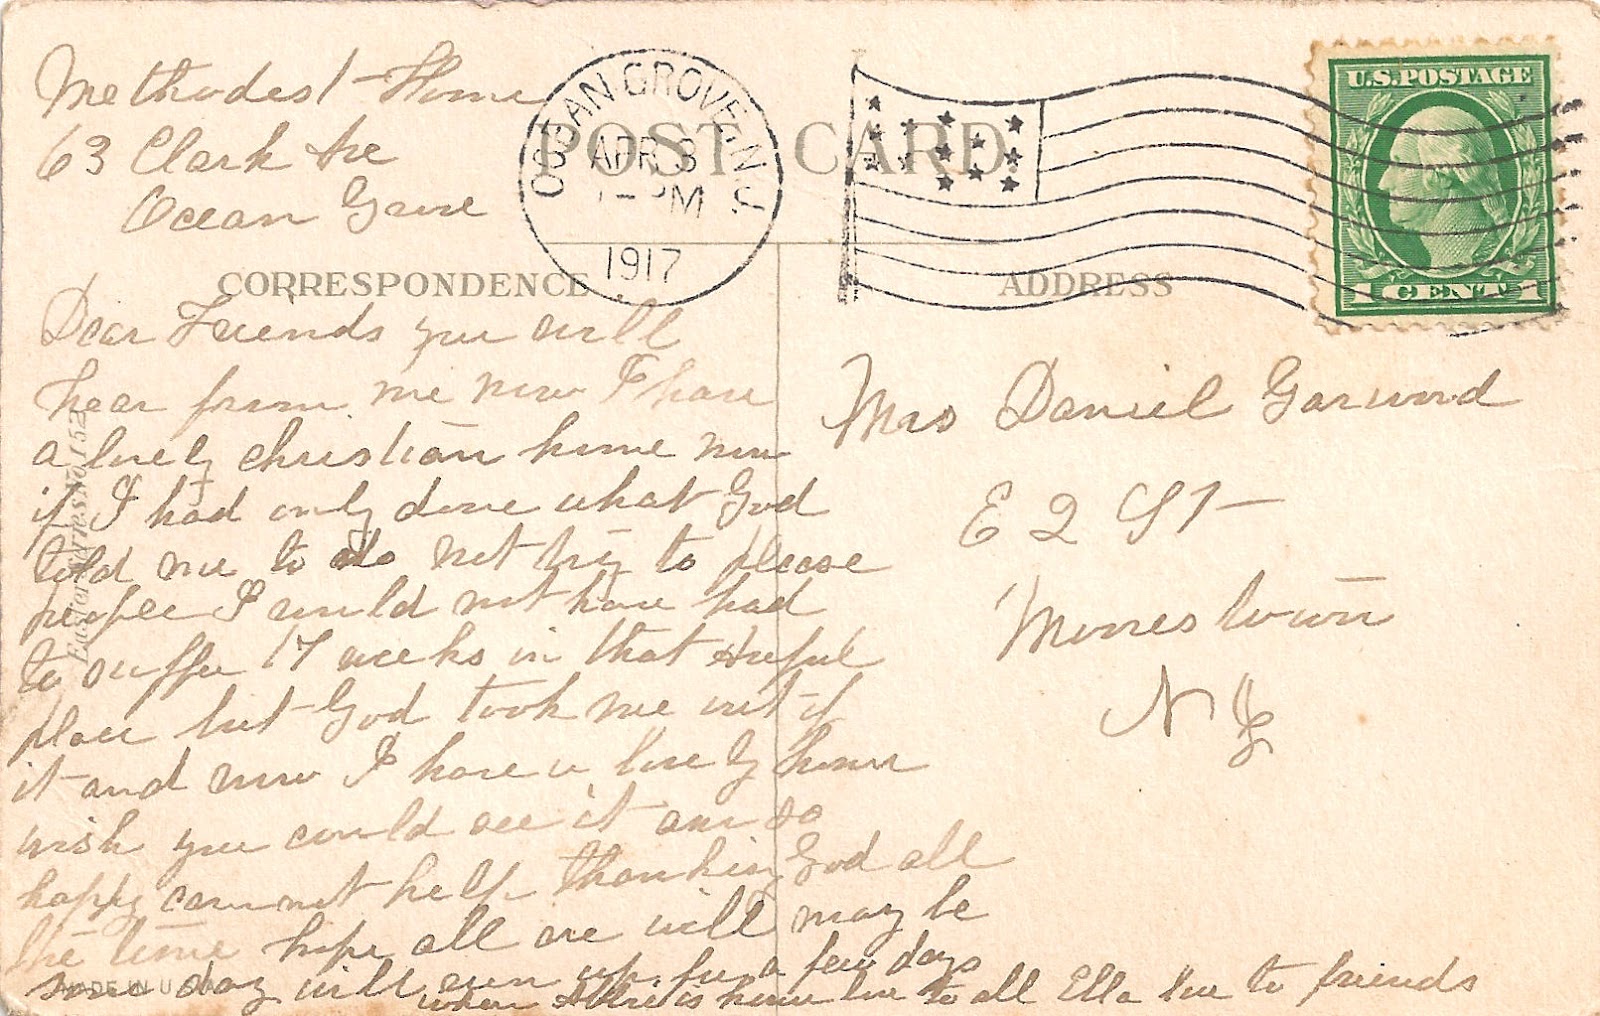 Methodest Home
63 Clark Ave
Ocean Grove
OCEAN GROVE, N.J.
APR 8
PM
1917
POST CARD
U.S. POSTAGE
1 CENT 1
CORRESPONDENCE
ADDRESS
Dear Friends you will
hear from me now I have
a lovely christian home now
if I had only done what God
told me to do not try to please
people I would not have had
to suffer 17 weeks in that
place but God took me out of
it and now I have a lovely home
wish you could see it am so
happy can not help thanking God all
the time hope all are well may be
some day will run up for a few days
when is home love to all Ella love to friends
Mrs Daniel Garwood
E 2 St
Moorestown
N J
Easter Series No. 152
MADE IN U.S.A.